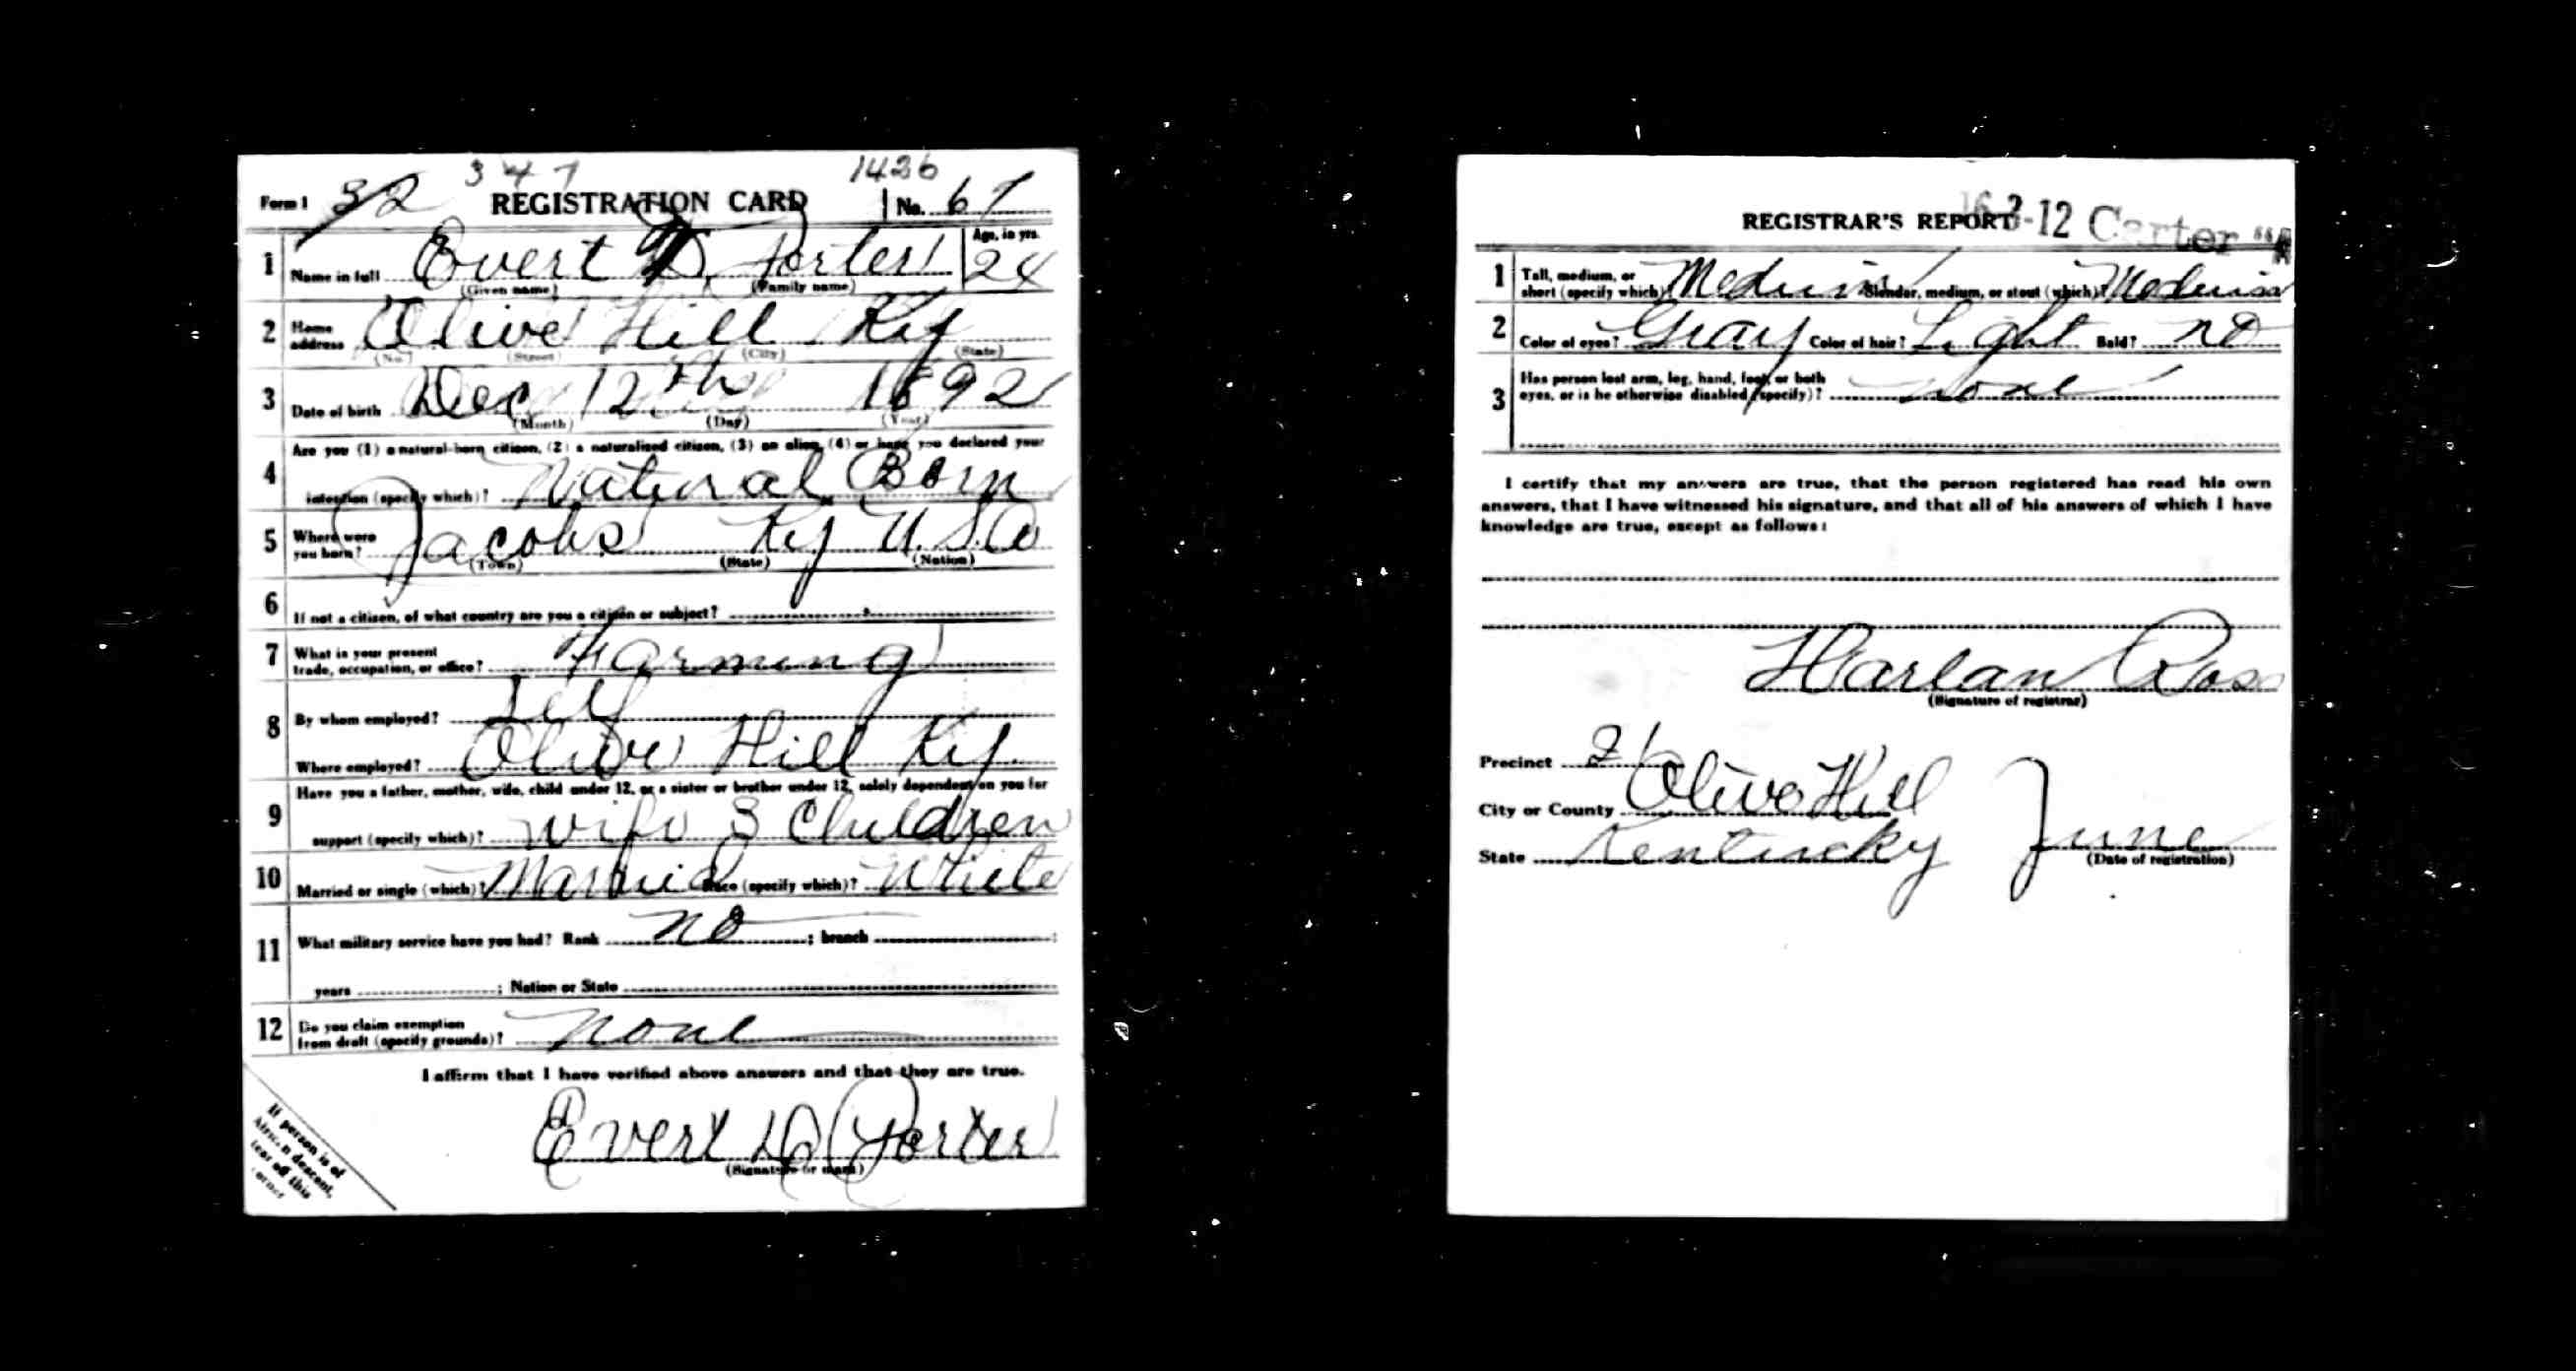 347 1426
Form 1 32 REGISTRATION CARD No. 67
1 Name in full Evert D. Porter Age, in yrs. 24
(Given name) (Family name)
2 Home address Olive Hill Ky
(No.) (Street) (City) (State)
3 Date of birth Dec 12th 1892
(Month) (Day) (Year)
Are you (1) a natural-born citizen, (2) a naturalized citizen, (3) an alien, (4) or have you declared your
4 intention (specify which)? Natural Born
5 Where were you born? Jacobs Ky U.S.A
(Town) (State) (Nation)
6 If not a citizen, of what country are you a citizen or subject?
7 What is your present trade, occupation, or office? Farming
8 By whom employed? Self
Where employed? Olive Hill Ky
Have you a father, mother, wife, child under 12, or a sister or brother under 12, solely dependent on you for
9 support (specify which)? Wife 3 Children
10 Married or single (which)? Married Race (specify which)? White
11 What military service have you had? Rank no ; branch ;
years ; Nation or State
12 Do you claim exemption from draft (specify grounds)? None
I affirm that I have verified above answers and that they are true.
Evert D Porter
(Signature or mark)
If person is of
African descent,
tear off this
corner
REGISTRAR'S REPORT 16-3-12 Carter "A
1 Tall, medium, or short (specify which)? Medium Slender, medium, or stout (which)? Medium
2 Color of eyes? Gray Color of hair? Light Bald? no
3 Has person lost arm, leg, hand, foot, or both
eyes, or is he otherwise disabled (specify)? none
I certify that my answers are true, that the person registered has read his own
answers, that I have witnessed his signature, and that all of his answers of which I have
knowledge are true, except as follows:
Harlan Ross
(Signature of registrar)
Precinct 21
City or County Olive Hill
State Kentucky June
(Date of registration)